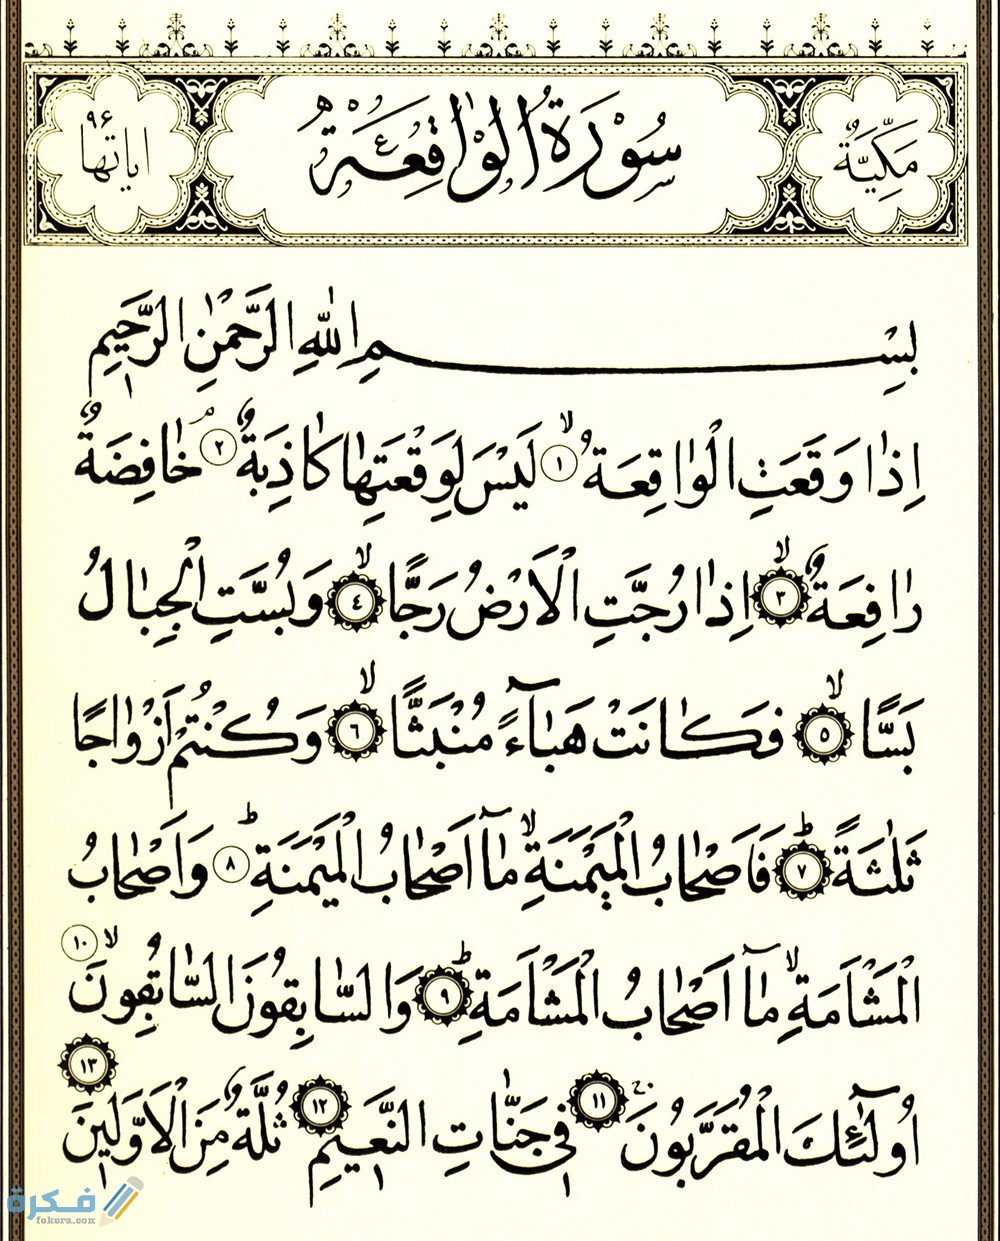 مَكِّيَّةٌ سُورَةُ الْوَاقِعَةِ اياتها ٩٦
بِسْمِ اللهِ الرَّحْمٰنِ الرَّحِيمِ
اِذَا وَقَعَتِ الْوَاقِعَةُ ۙ ١ لَيْسَ لِوَقْعَتِهَا كَاذِبَةٌ ۢ ٢ خَافِضَةٌ
رَافِعَةٌ ۙ ٣ اِذَا رُجَّتِ الْاَرْضُ رَجًّا ۙ ٤ وَبُسَّتِ الْجِبَالُ
بَسًّا ۙ ٥ فَكَانَتْ هَبَآءً مُنْبَثًّا ۙ ٦ وَكُنْتُمْ اَزْوَاجًا
ثَلٰثَةً ۜ ٧ فَاَصْحَابُ الْمَيْمَنَةِ ۙ مَٓا اَصْحَابُ الْمَيْمَنَةِ ۜ ٨ وَاَصْحَابُ
الْمَشْاَمَةِ ۙ مَٓا اَصْحَابُ الْمَشْاَمَةِ ۜ ٩ وَالسَّابِقُونَ السَّابِقُونَ ۙ ١٠
اُولٰٓئِكَ الْمُقَرَّبُونَ ۚ ١١ فِي جَنَّاتِ النَّعِيمِ ١٢ ثُلَّةٌ مِنَ الْاَوَّلِينَ ١٣
فكرة
fekera.com